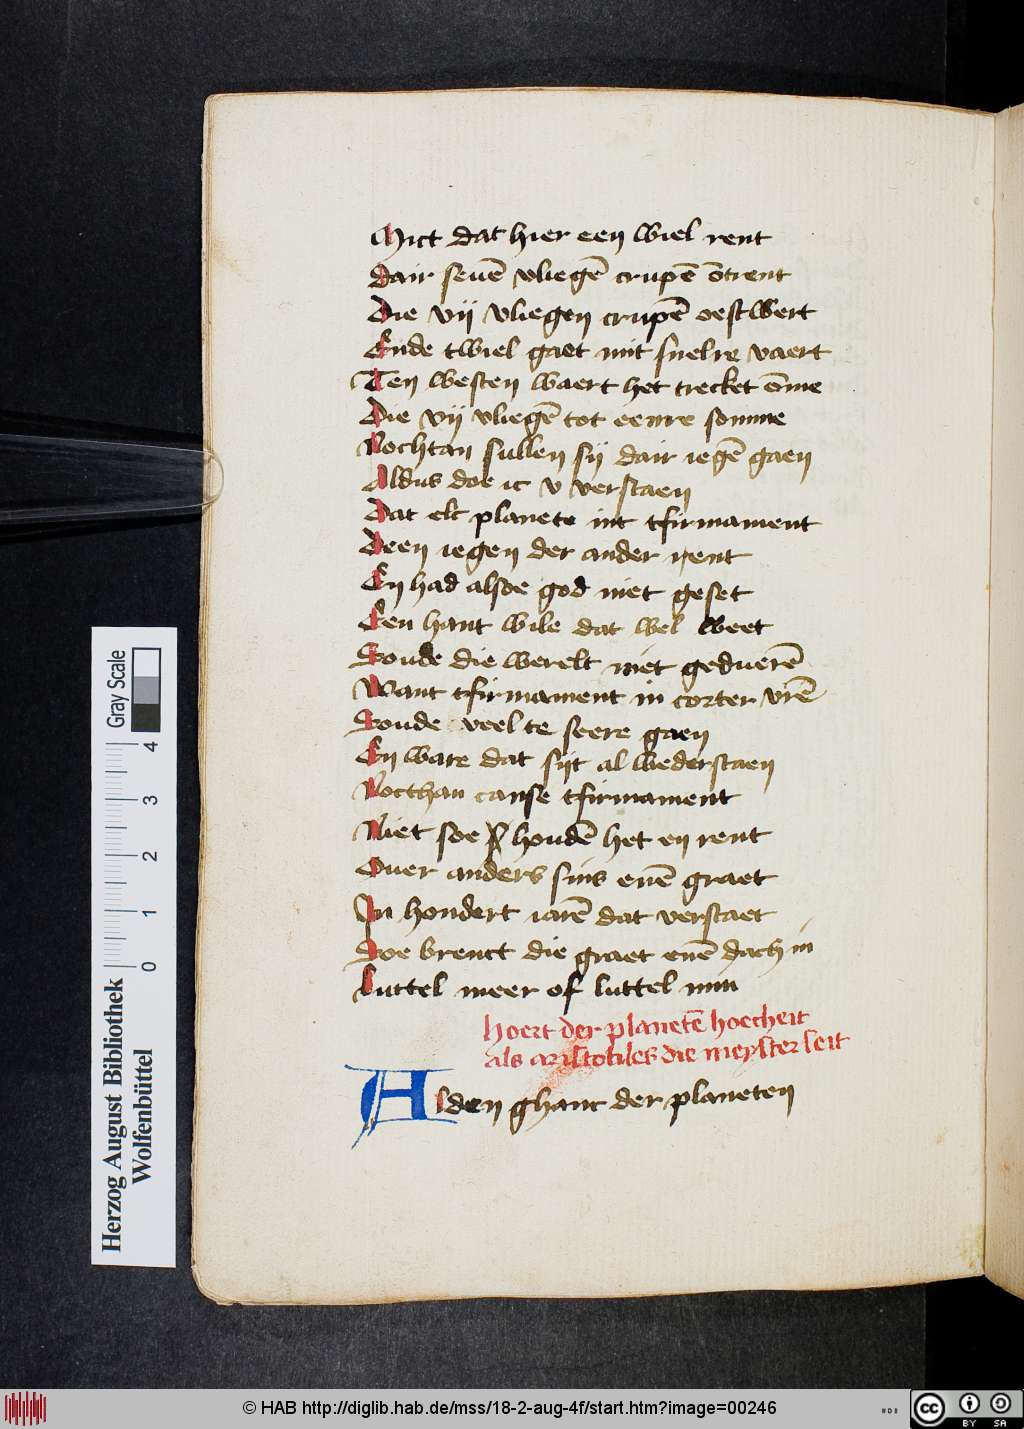 Mict dat hier een wiel rent
dair seuē vliegē crupē ōtrent
Die vij vliegen crupē oestwert
Ende twiel gaet mit snelre vaert
Ten westen waert het trecket ōme
Die vij vliegē tot eenre somme
Nochtan sullen sij dair iegē gaen
Aldus doe ic v verstaen
Dat elc planete int tfirmament
Deen iegen der ander rent
En had alsoe god niet geset
Een hant wile dat wel weet
Soude die werelt niet geduerē
Want tfirmament in corter vrē
Soude veel te seere gaen
En ware dat sijt al wederstaen
Nocthan canse tfirmament
Niet soe houdē het en rent
Ouer anders sins enē graet
In hondert iarē dat verstaet
Soe brenct die graet enē dach in
Luttel meer of luttel min
hoert der planetē hoecheit
als aristotiles die meyster seit
Alden ghanc der planeten
Herzog August Bibliothek
Wolfenbüttel
Gray Scale
0 1 2 3 4
© HAB http://diglib.hab.de/mss/18-2-aug-4f/start.htm?image=00246
cc BY SA